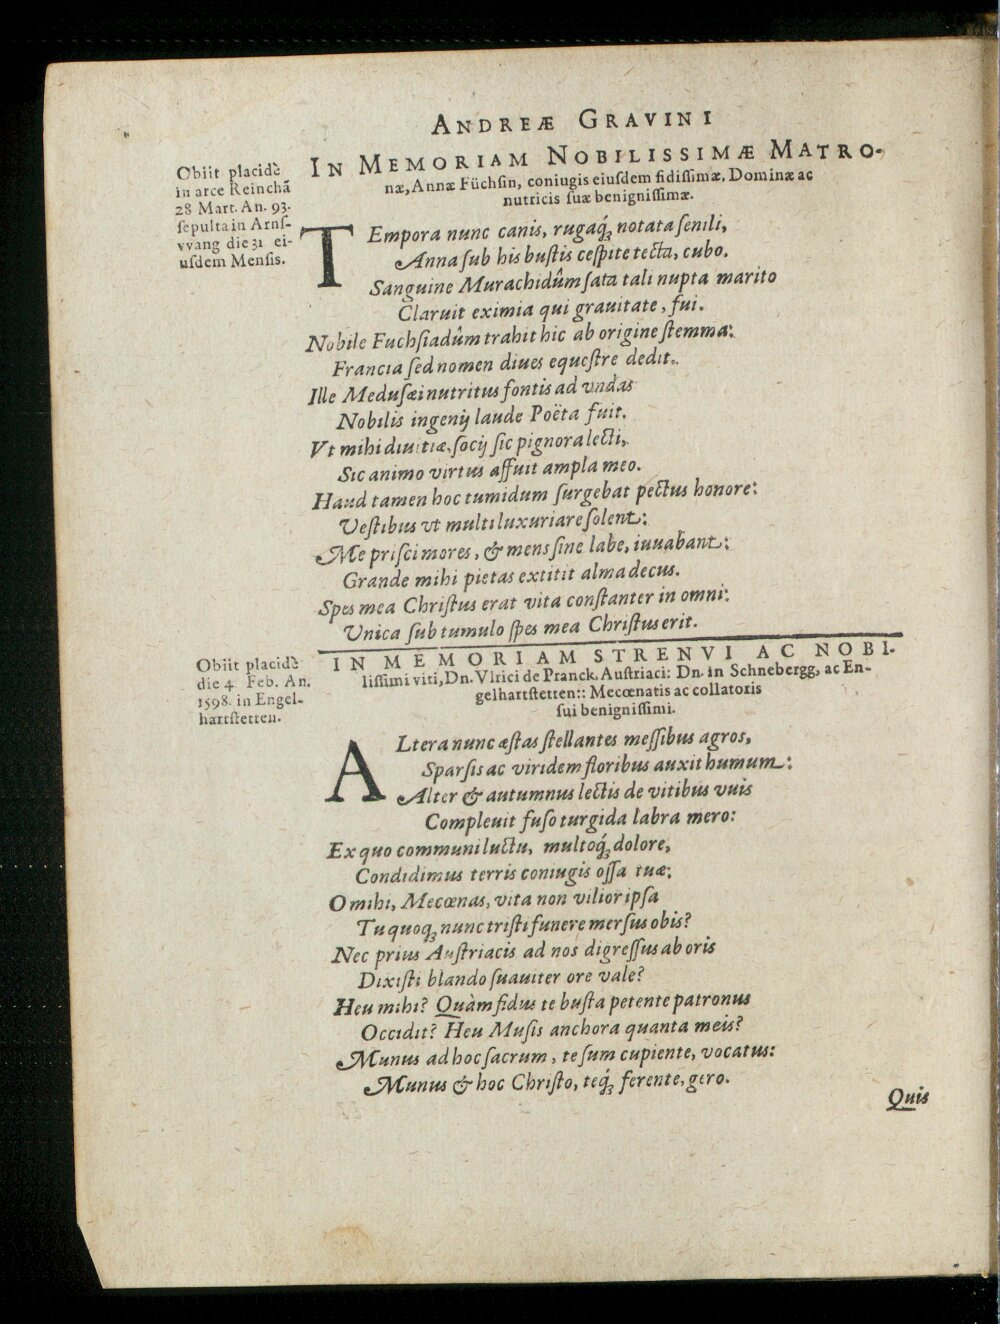 ANDREÆ GRAVINI
IN MEMORIAM NOBILISSIMÆ MATRO-
næ, Annæ Füchſin, coniugis eiuſdem fidiſſimæ, Dominæ ac
nutricis ſuæ benigniſſimæ.
Obiit placidè
in arce Reinchā
28 Mart. An. 93.
ſepulta in Arnſ-
vvang die 31 ei-
uſdem Menſis.
TEmpora nunc canis, rugaq́ꝫ notata ſenili,
Anna ſub his buſtis ceſpite tecta, cubo.
Sanguine Murachidûm ſata tali nupta marito
Claruit eximia qui grauitate, fui.
Nobile Fuchſiadûm trahit hic ab origine ſtemma:
Francia ſed nomen diues equeſtre dedit.
Ille Meduſæi nutritus fontis ad vndas
Nobilis ingenij laude Poëta fuit.
Vt mihi diuitiæ, ſocij ſic pignora lecti,
Sic animo virtus affuit ampla meo.
Haud tamen hoc tumidum ſurgebat pectus honore:
Veſtibus vt multi luxuriare ſolent:
Me priſci mores, & mens ſine labe, iuuabant:
Grande mihi pietas extitit alma decus.
Spes mea Chriſtus erat vita conſtanter in omni:
Unica ſub tumulo ſpes mea Chriſtus erit.
IN MEMORIAM STRENVI AC NOBI-
liſſimi viti, Dn. Vlrici de Pranck, Auſtriaci: Dn. in Schnebergg, ac En-
gelhartſtetten:: Mecœnatis ac collatoris
ſui benigniſſimi.
Obiit placidè
die 4 Feb. An.
1598. in Engel-
hartſtetten.
ALtera nunc æſtas ſtellantes meſſibus agros,
Sparſis ac viridem floribus auxit humum:
Alter & autumnus lectis de vitibus vuis
Compleuit fuſo turgida labra mero:
Ex quo communi luctu, multoq́ꝫ dolore,
Condidimus terris coniugis oſſa tuæ:
O mihi, Mecœnas, vita non vilior ipſa
Tu quoqꝫ nunc triſti funere merſus obis?
Nec prius Auſtriacis ad nos digreſſus ab oris
Dixiſti blando ſuauiter ore vale?
Heu mihi? Quàm fidus te buſta petente patronus
Occidit? Heu Muſis anchora quanta meis?
Munus ad hoc ſacrum, te ſum cupiente, vocatus:
Munus & hoc Chriſto, teq́ꝫ ferente, gero.
Quis